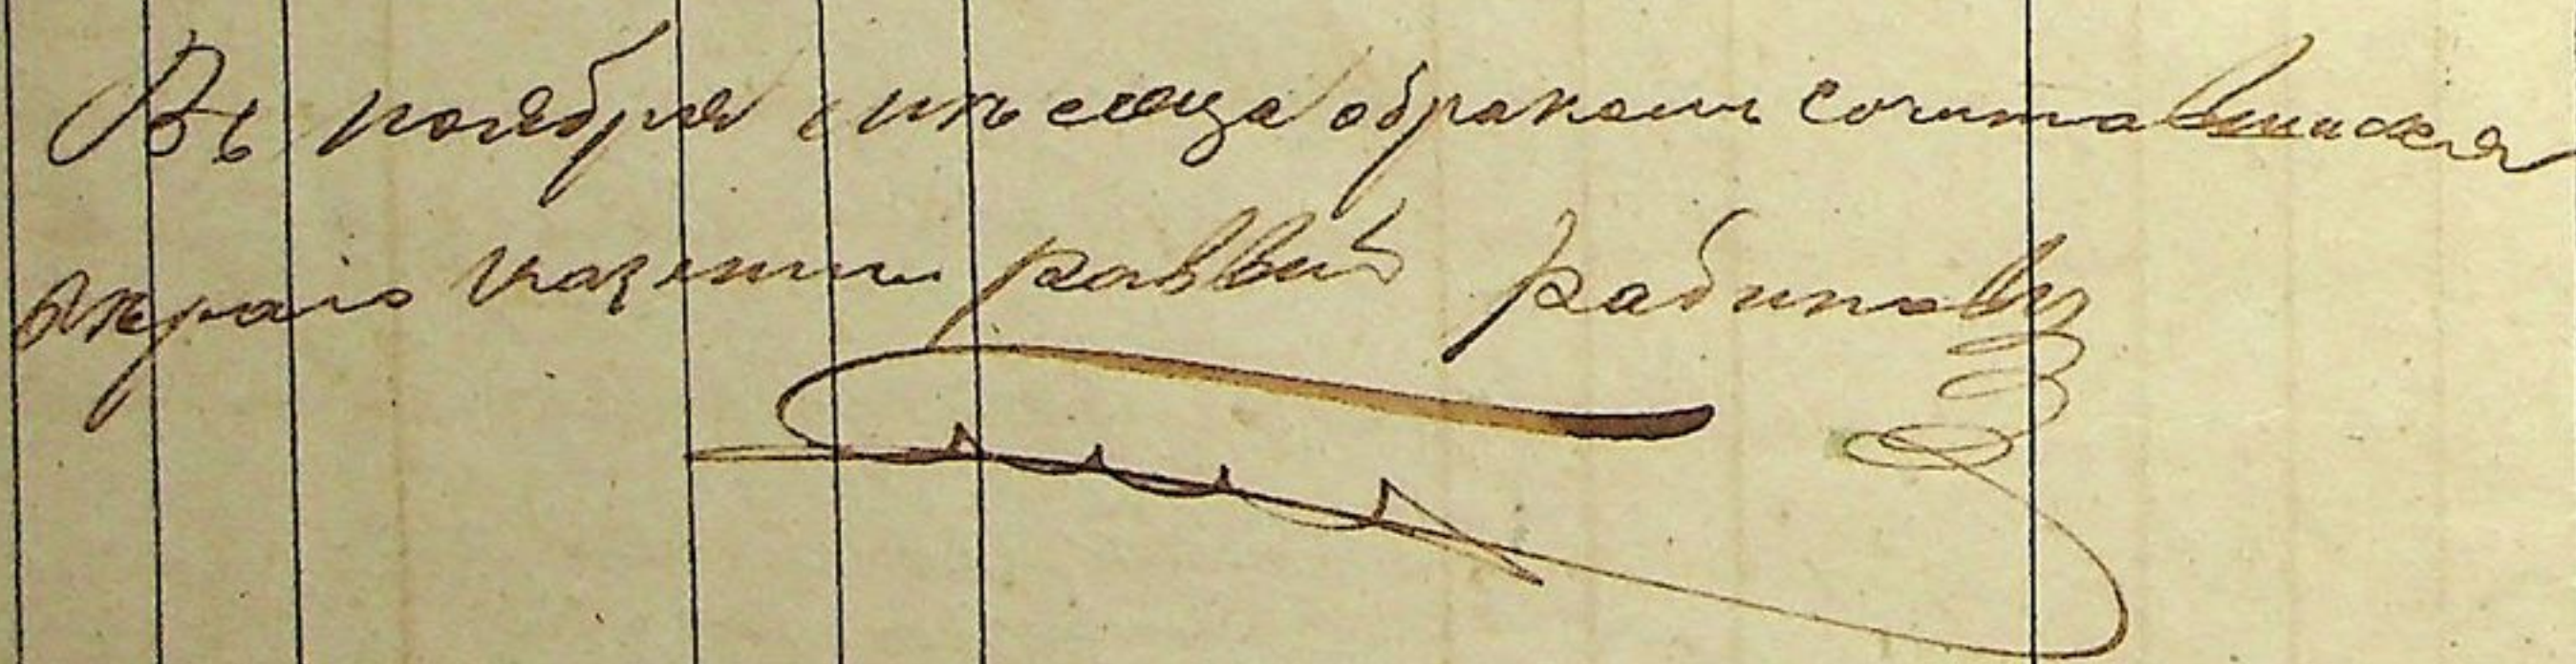 Въ ноября мѣсяца обракомъ сочитавшися
казенный раввинъ Рабинович